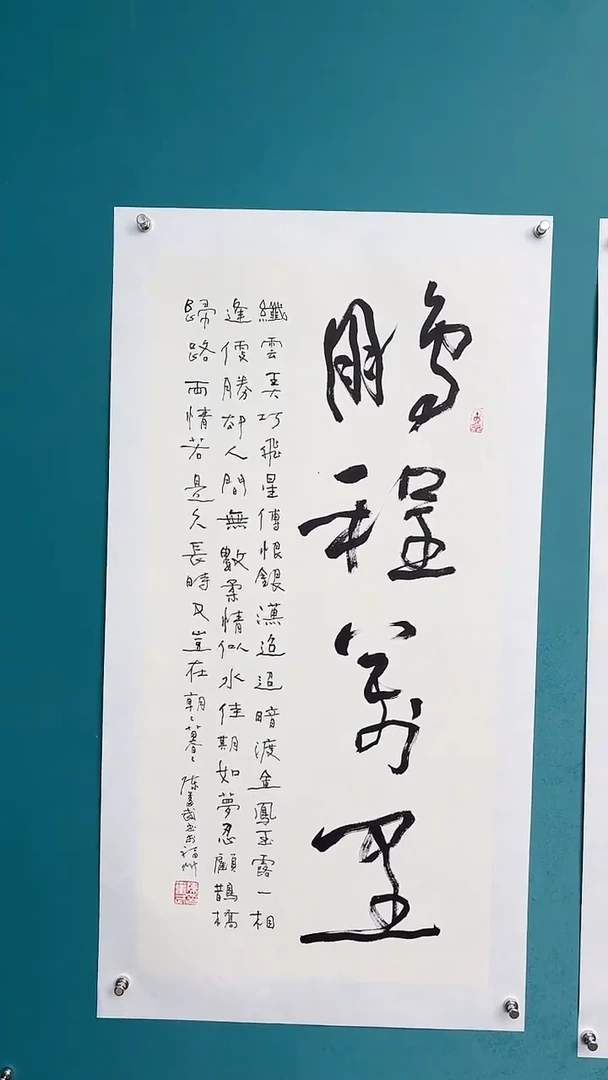 鵬程萬里
纖雲弄巧飛星傳恨銀漢迢迢暗渡金鳳玉露一相
逢便勝却人間無數柔情似水佳期如夢忍顧鵲橋
歸路兩情若是久長時又豈在朝々暮々 陈 武书于福州